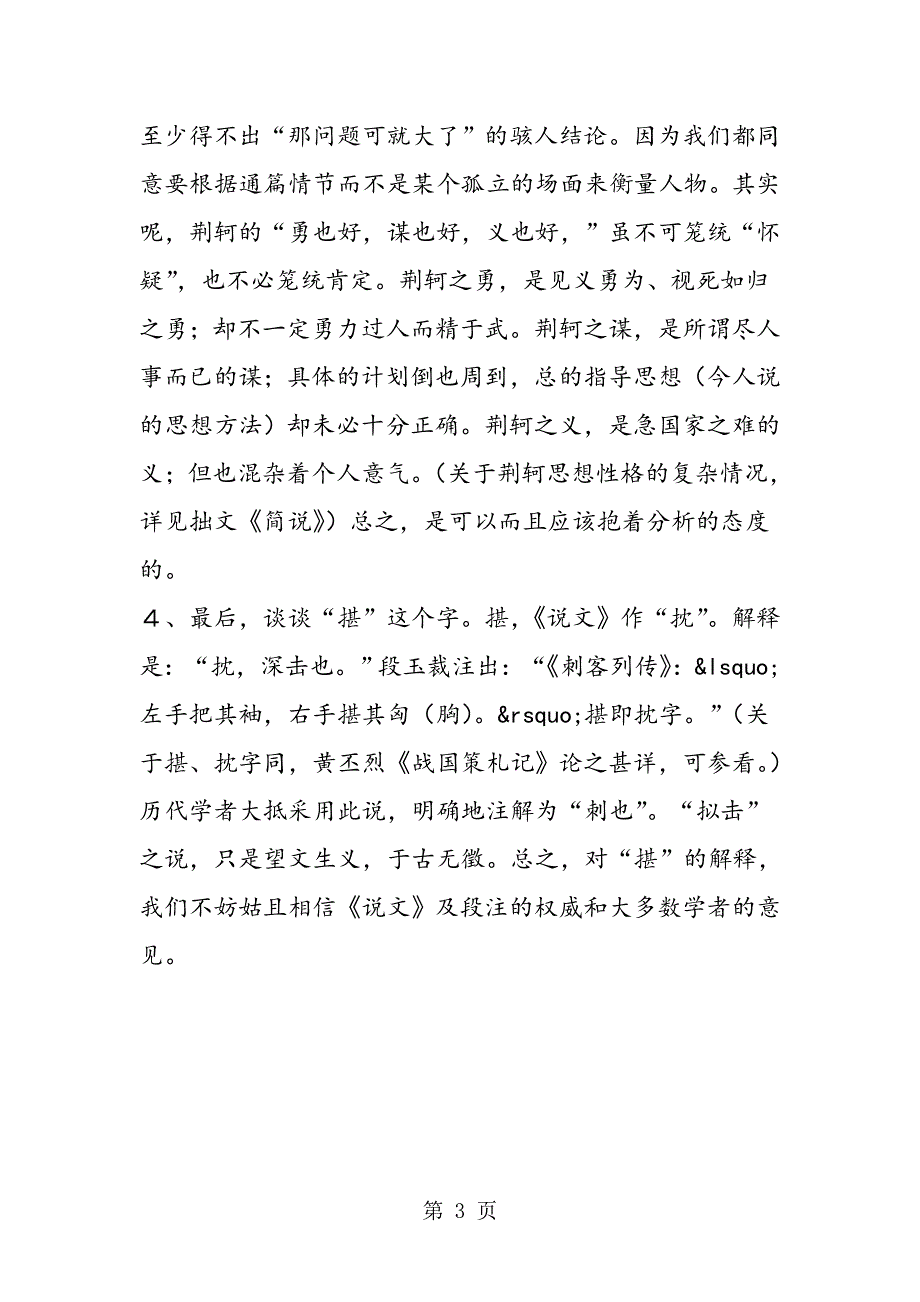 至少得不出“那问题可就大了”的骇人结论。因为我们都同
意要根据通篇情节而不是某个孤立的场面来衡量人物。其实
呢，荆轲的“勇也好，谋也好，义也好，”虽不可笼统“怀
疑”，也不必笼统肯定。荆轲之勇，是见义勇为、视死如归
之勇；却不一定勇力过人而精于武。荆轲之谋，是所谓尽人
事而已的谋；具体的计划倒也周到，总的指导思想（今人说
的思想方法）却未必十分正确。荆轲之义，是急国家之难的
义；但也混杂着个人意气。（关于荆轲思想性格的复杂情况，
详见拙文《简说》）总之，是可以而且应该抱着分析的态度
的。
４、最后，谈谈“揕”这个字。揕，《说文》作“抌”。解释
是：“抌，深击也。”段玉裁注出：“《刺客列传》：&lsquo;
左手把其袖，右手揕其匈（胸）。&rsquo;揕即抌字。”（关
于揕、抌字同，黄丕烈《战国策札记》论之甚详，可参看。）
历代学者大抵采用此说，明确地注解为“刺也”。“拟击”
之说，只是望文生义，于古无徵。总之，对“揕”的解释，
我们不妨姑且相信《说文》及段注的权威和大多数学者的意
见。
第 3 页